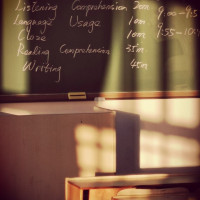 Listening Comprehension 20m 9:00-9:5
Language Usage 10m
Cloze 10m 9:55-10:
Reading Comprehension 35m
Writing 45m